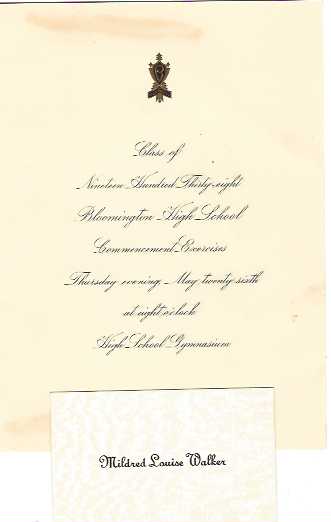 Class of
Nineteen Hundred Thirty-eight
Bloomington High School
Commencement Exercises
Thursday evening, May twenty-sixth
at eight o'clock
High School Gymnasium
Mildred Louise Walker